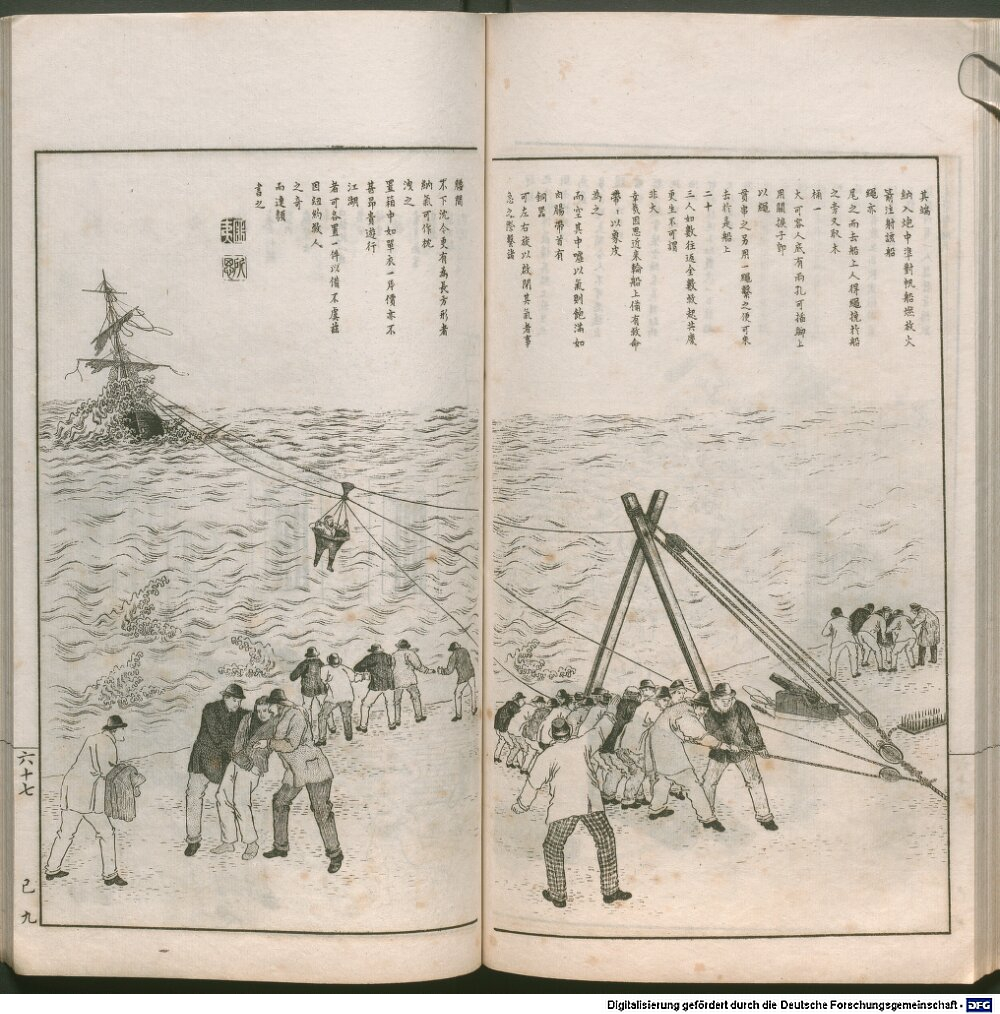 其端
納入炮中準對帆船燃放火
箭注射該船
繩亦
尾之而去船上人得繩挽於船
之旁又取木
桶一
大可容人底有兩孔可插腳上
用關捩子卸
以繩
貫串之另用一繩繫之便可來
去於是船上
二十
三人如數往返全數救起共慶
更生不可謂
非大
幸哉因思近來輪船上備有救命
帶〻以象皮
為之
而空其中噓以氣則飽滿如
肉腸帶首有
銅器
可左右旋以啟閉其氣者事
急之際繫諸
腰間
不下沈今更有為長方形者
納氣可作枕
洩之
置箱中如單衣一片價亦不
甚昂貴遊行
江湖
者可各置一件以備不虞茲
因紐約救人
之奇
而連類
書之
六十七
己
九
Digitalisierung gefördert durch die Deutsche Forschungsgemeinschaft - DFG